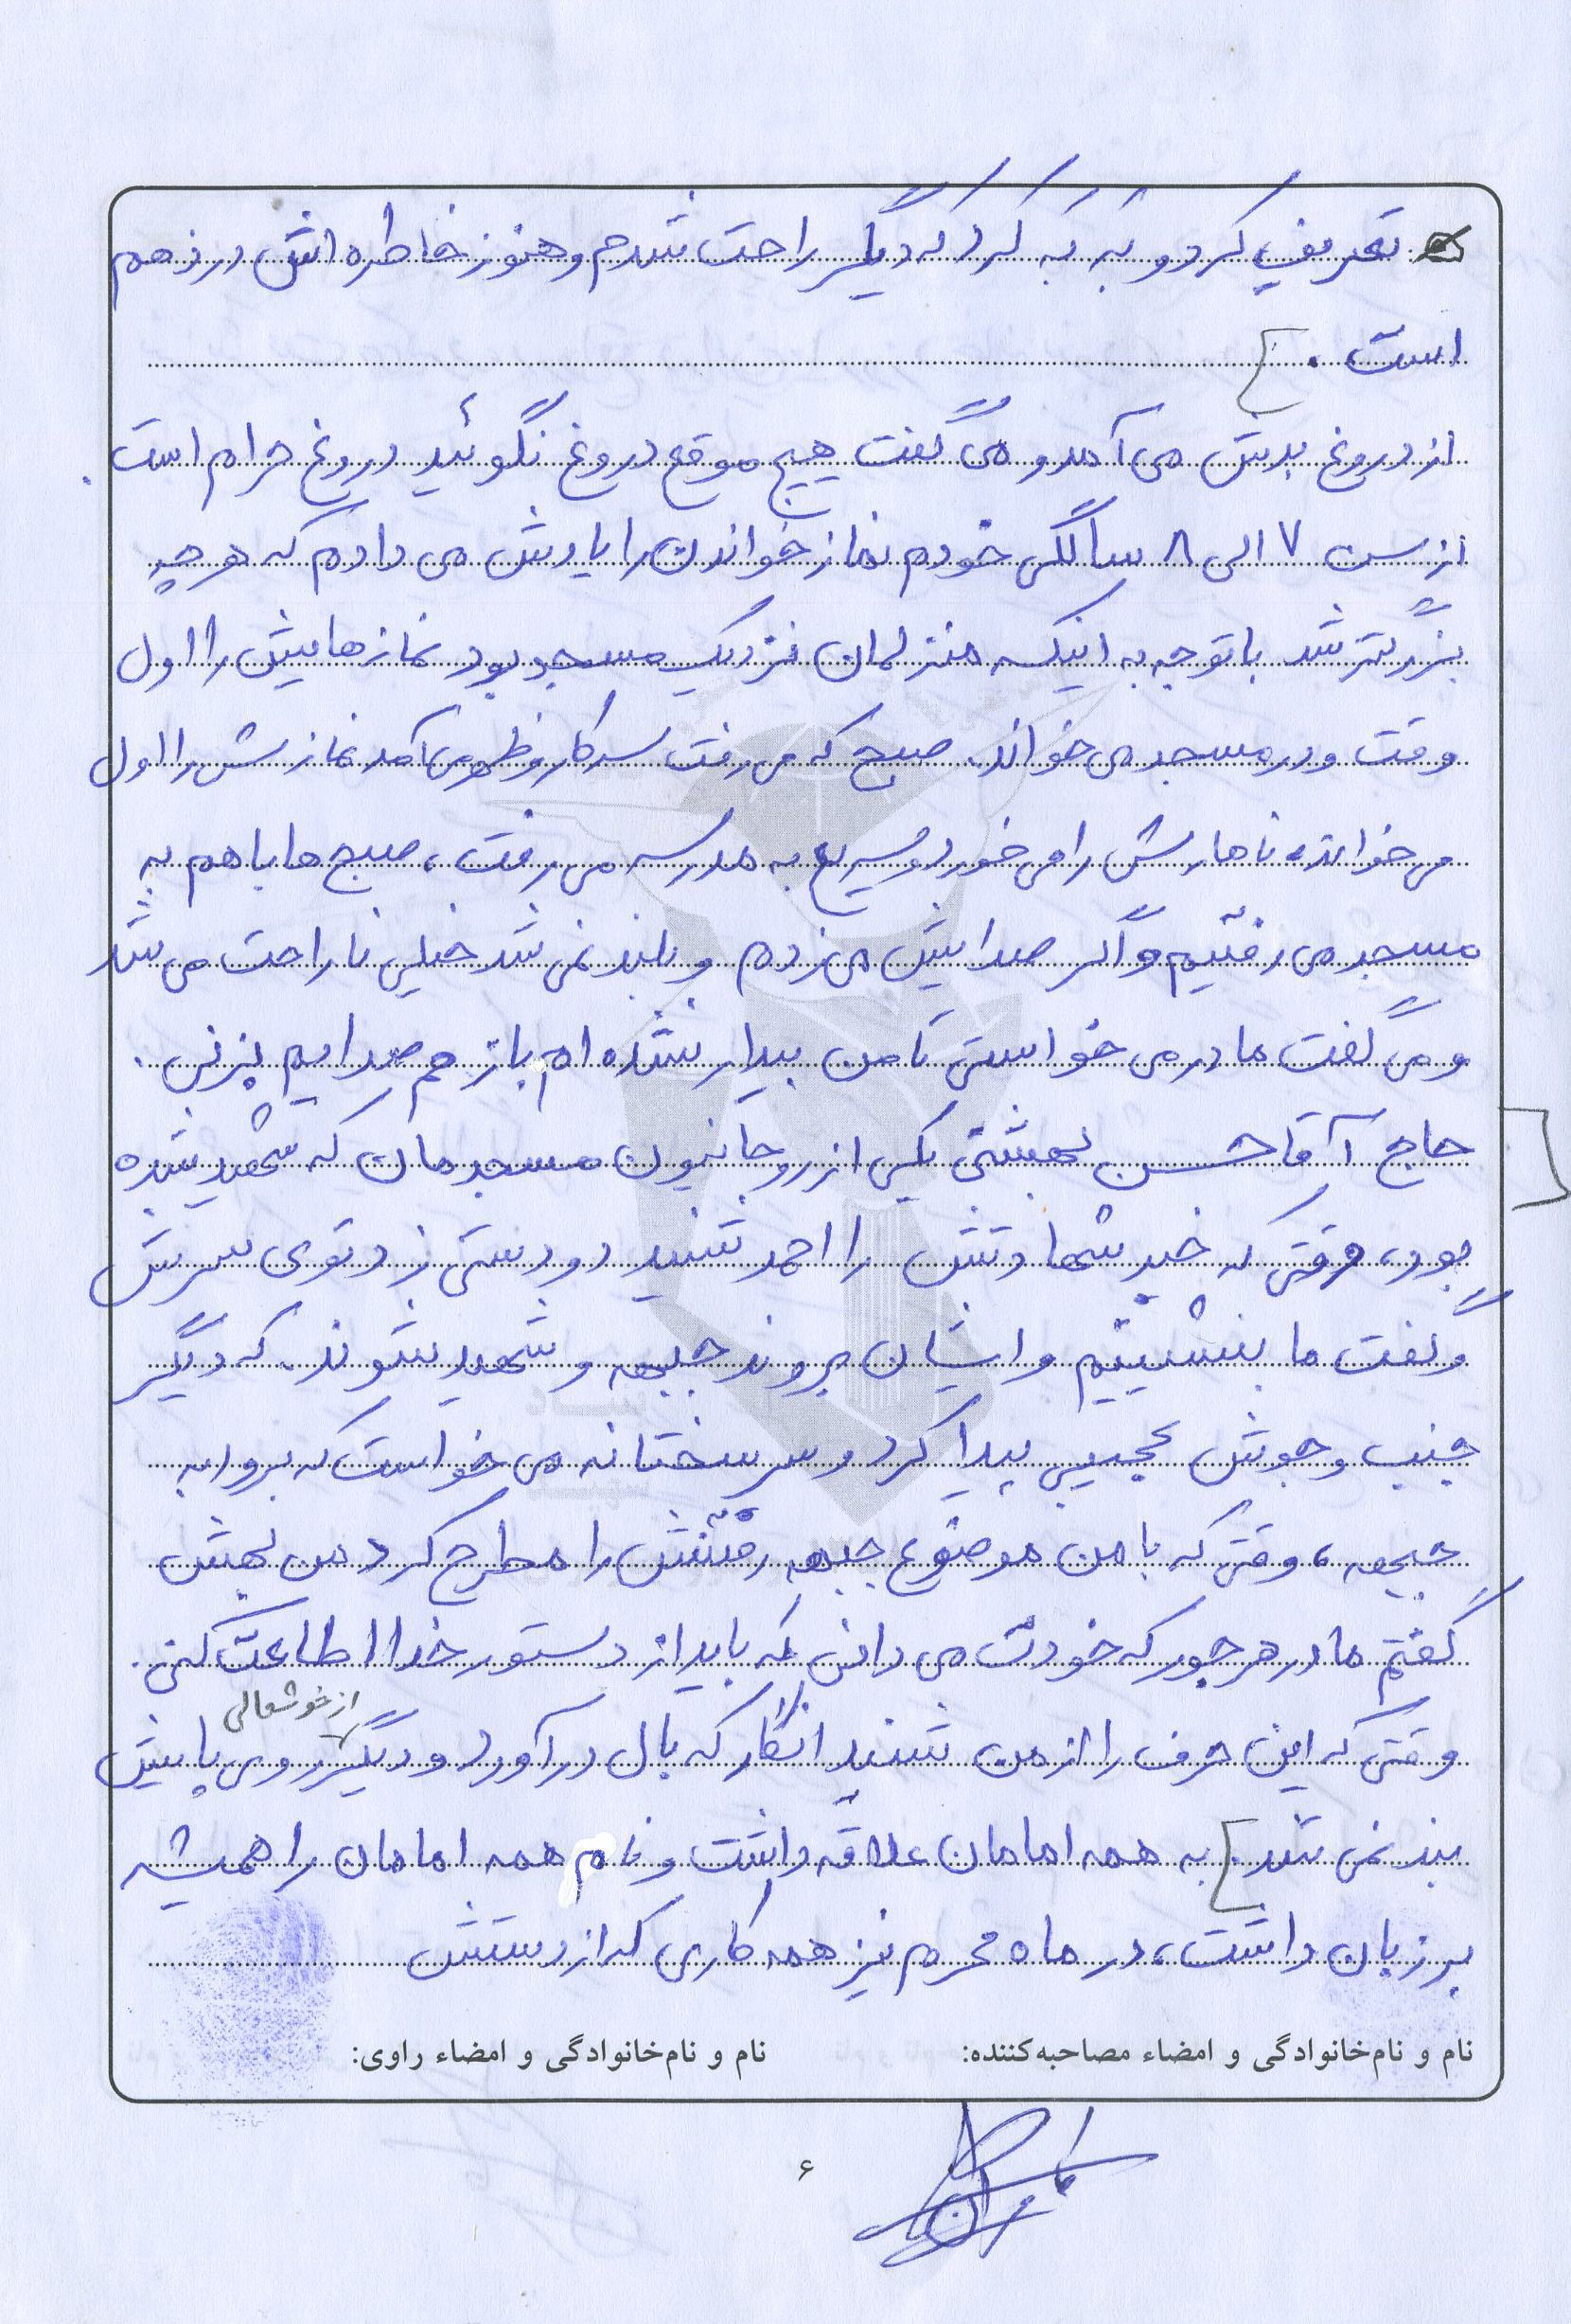 تعریف کرد و به به کرد که دیگر راحت شدم و هنوز خاطره اش در ذهنم
است.
از دروغ بدش می آمد و می گفت هیچ موقع دروغ نگوئید دروغ حرام است.
از سن ۷ الی ۸ سالگی خودم نماز خواندن را یادش می دادم که هر چه
بزرگتر شد با توجه به اینکه منزلمان نزدیک مسجد بود نمازهایش را اول
وقت و در مسجد می خواند. صبح که می رفت سر کار و ظهر می آمد نمازش را اول
می خواند، ناهارش را می خورد و سریع به مدرسه می رفت، صبح ها با هم به
مسجد می رفتیم و اگر صدایش می زدم و بلند نمی شد خیلی ناراحت می شد
و می گفت مادر می خواستی تا من بیدار نشده ام باز هم صدایم بزنی.
حاج آقا حسن بهشتی یکی از روحانیون مسجدمان که شهید شده
بود، وقتی که خبر شهادتش را احمد شنید دو دستی زد توی سرش
و گفت ما بنشینیم و ایشان بروند جبهه و شهید شوند. که دیگر
جنب و جوش عجیبی پیدا کرد و سرسختانه می خواست که برود به
جبهه، وقتی که با من موضوع جبهه رفتنش را مطرح کرد من بهش
گفتم مادر هر جور که خودت می دانی که باید از دستور خدا اطاعت کنی.
از خوشحالی
وقتی که این حرف را از من شنید انگار که بال درآورد و دیگر روی پایش
بند نمی شد. به همه امامان علاقه داشت و نام همه امامان را همیشه
بر زبان داشت، در ماه محرم نیز همه کاری که از دستش
نام و نام‌خانوادگی و امضاء مصاحبه‌کننده: نام و نام‌خانوادگی و امضاء راوی:
۶